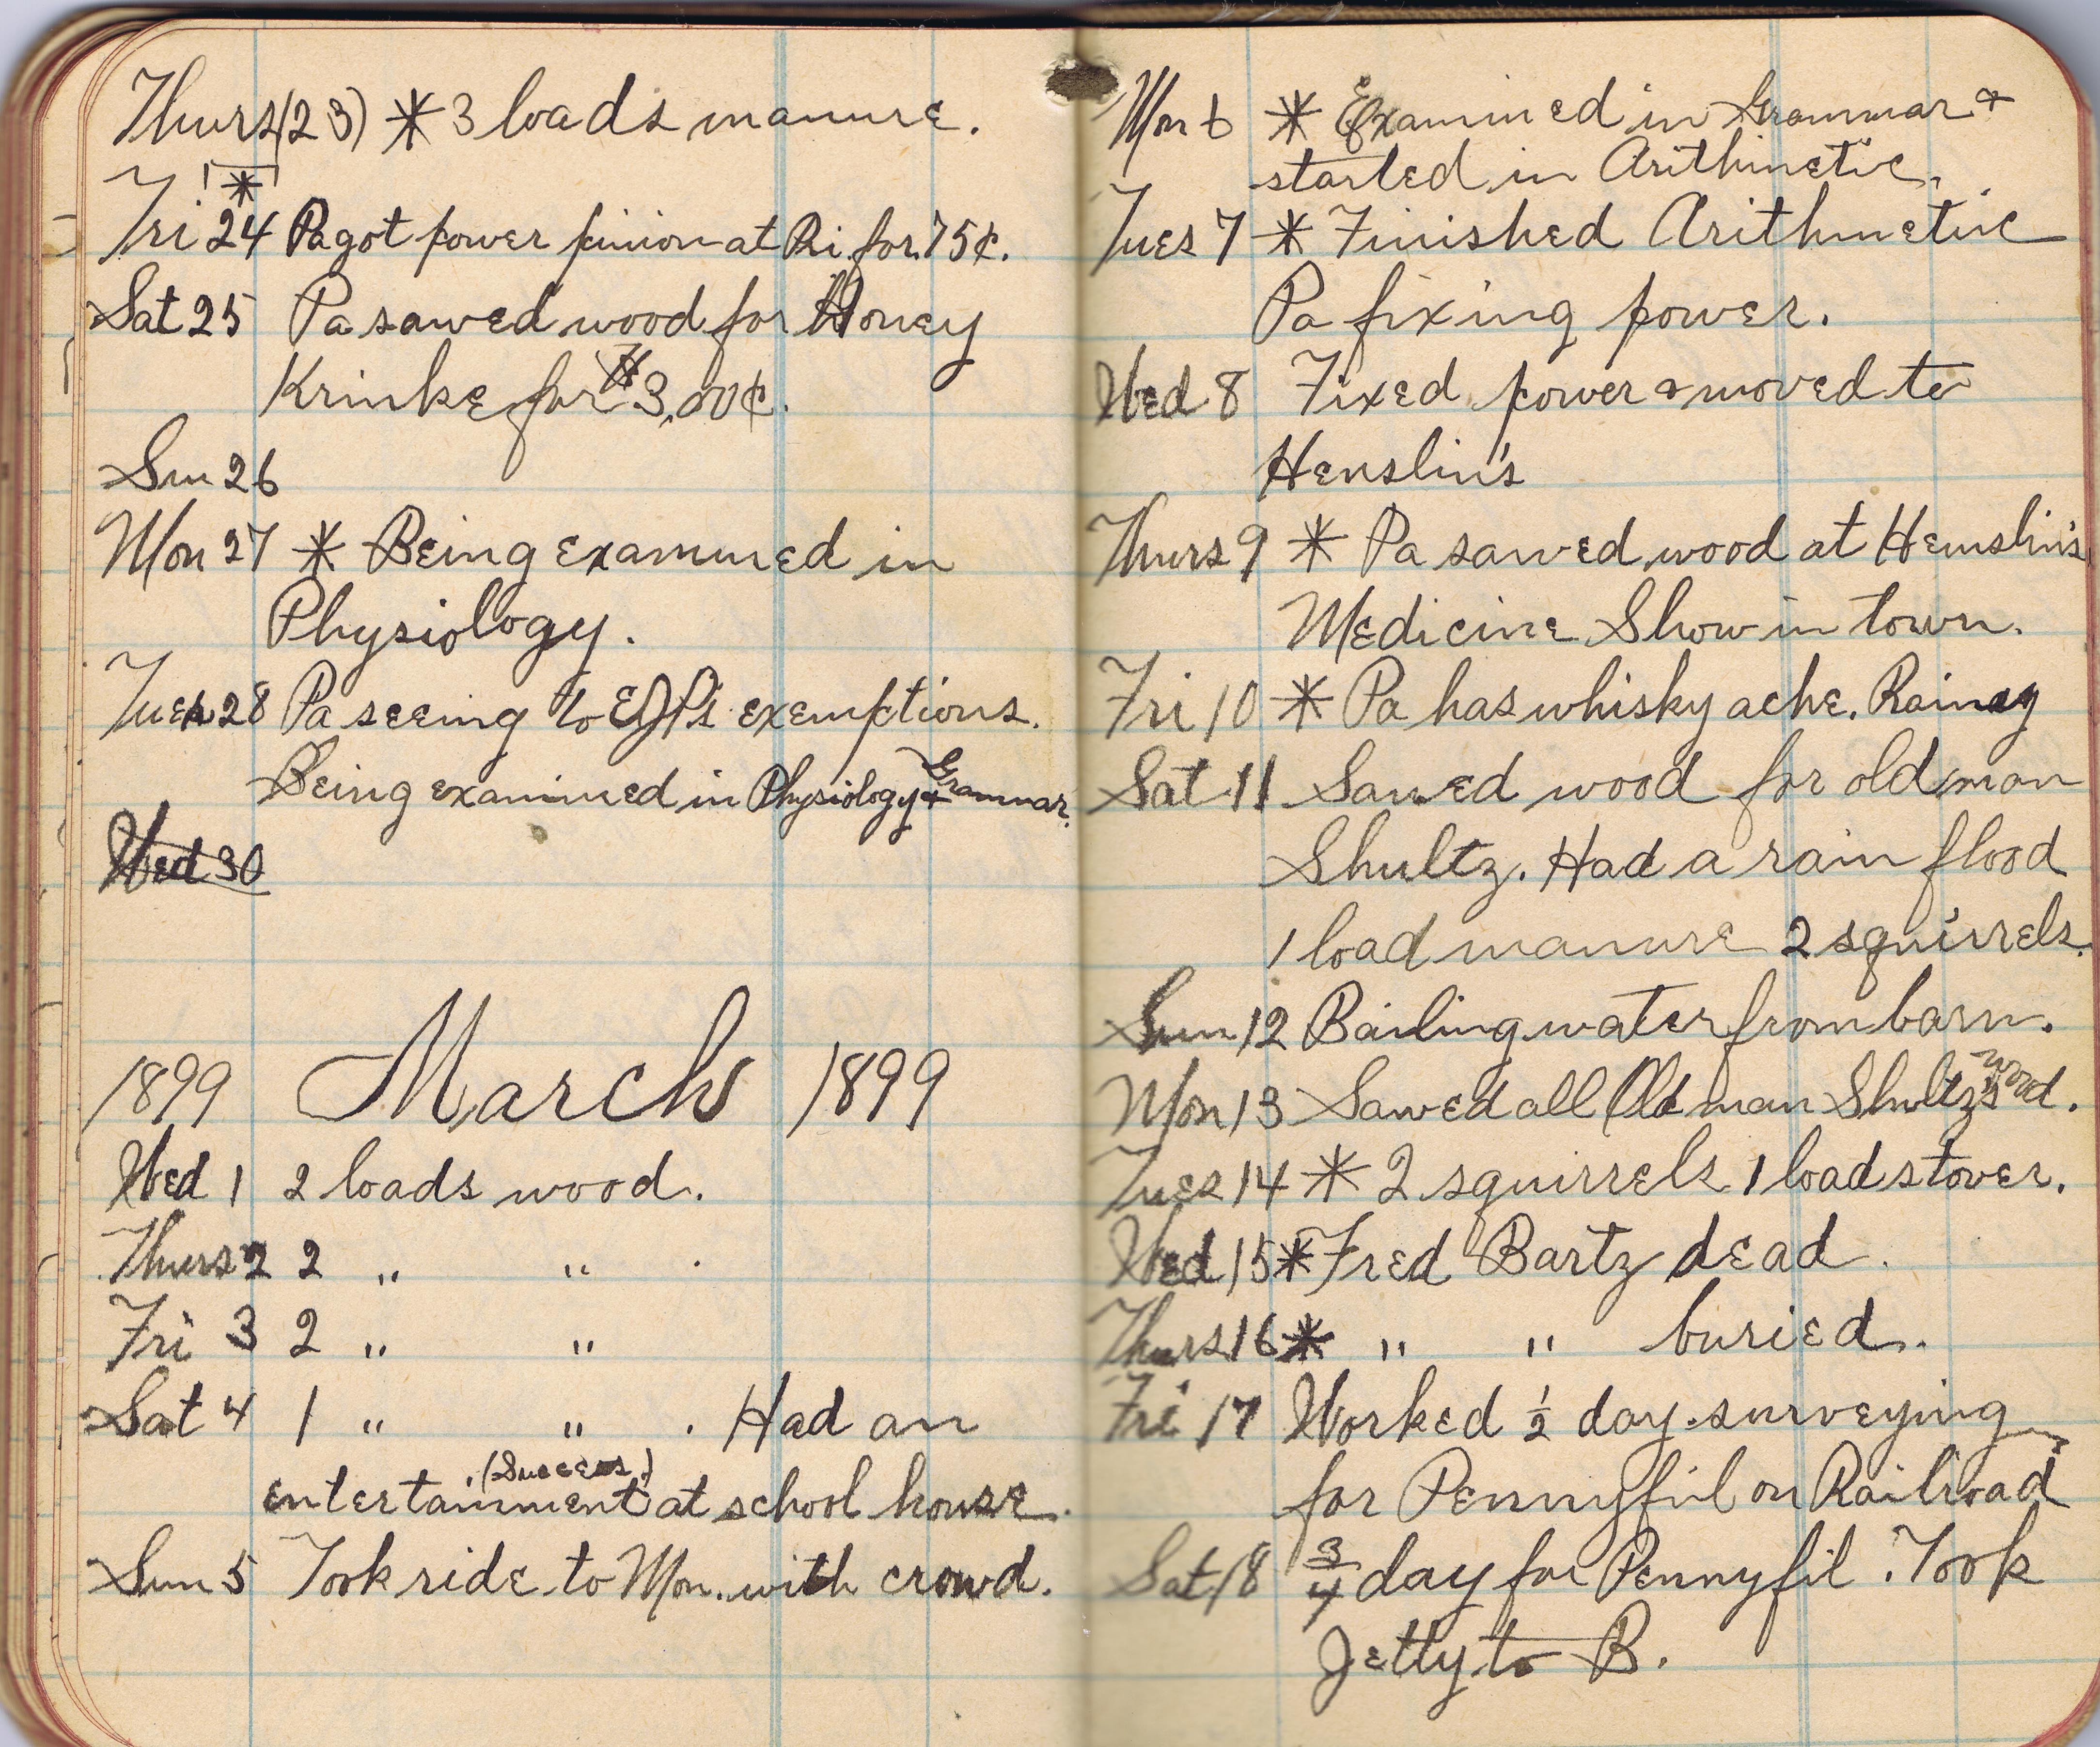 Thurs (23) * 3 loads manure.
Fri 24 * Pa got power pinion at Ri. for 75¢.
Sat 25 Pa sawed wood for Honey
Krinke for $3.00¢.
Sun 26
Mon 27 * Being examined in
Physiology.
Tues 28 Pa seeing to exemptions.
Being examined in Physiology & Grammar.
Wed 30
1899 March 1899
Wed 1 2 loads wood.
Thurs 2 2 " " .
Fri 3 2 " "
Sat 4 1 " " . Had an
entertainment (Success) at school house.
Sun 5 Took ride to Mon. with crowd.
Mon 6 * Examined in Grammar &
started in Arithmetic.
Tues 7 * Finished Arithmetic
Pa fixing power.
Wed 8 Fixed power & moved to
Henslin's
Thurs 9 * Pa sawed wood at Henslin's
Medicine Show in town.
Fri 10 * Pa has whisky ache. Rainy
Sat 11 Sawed wood for old man
Shultz. Had a rain flood
1 load manure 2 squirrels.
Sun 12 Bailing water from barn.
Mon 13 Sawed all Old man Shultz's wood.
Tues 14 * 2 squirrels 1 load stover.
Wed 15 * Fred Bartz dead.
Thurs 16 * " " buried.
Fri 17 Worked ½ day surveying
for Pennyfil on Railroad
Sat 18 ¾ day for Pennyfil. Took
Jetty to B.